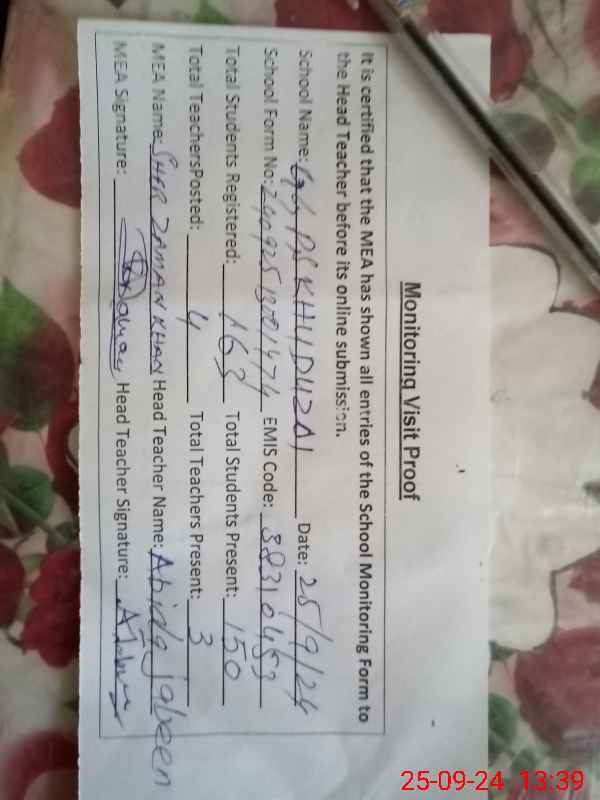 Monitoring Visit Proof
It is certified that the MEA has shown all entries of the School Monitoring Form to
the Head Teacher before its online submission.
School Name: PS KHUDUZAI Date: 25/9/24
School Form No: EMIS Code:
Total Students Registered: 163 Total Students Present: 150
Total TeachersPosted: 4 Total Teachers Present: 3
MEA Name: SHER ZAMAN KHAN Head Teacher Name: Abida jabeen
MEA Signature: Head Teacher Signature:
25-09-24 13:39